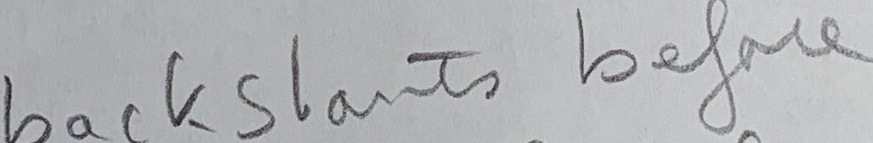 backslants before